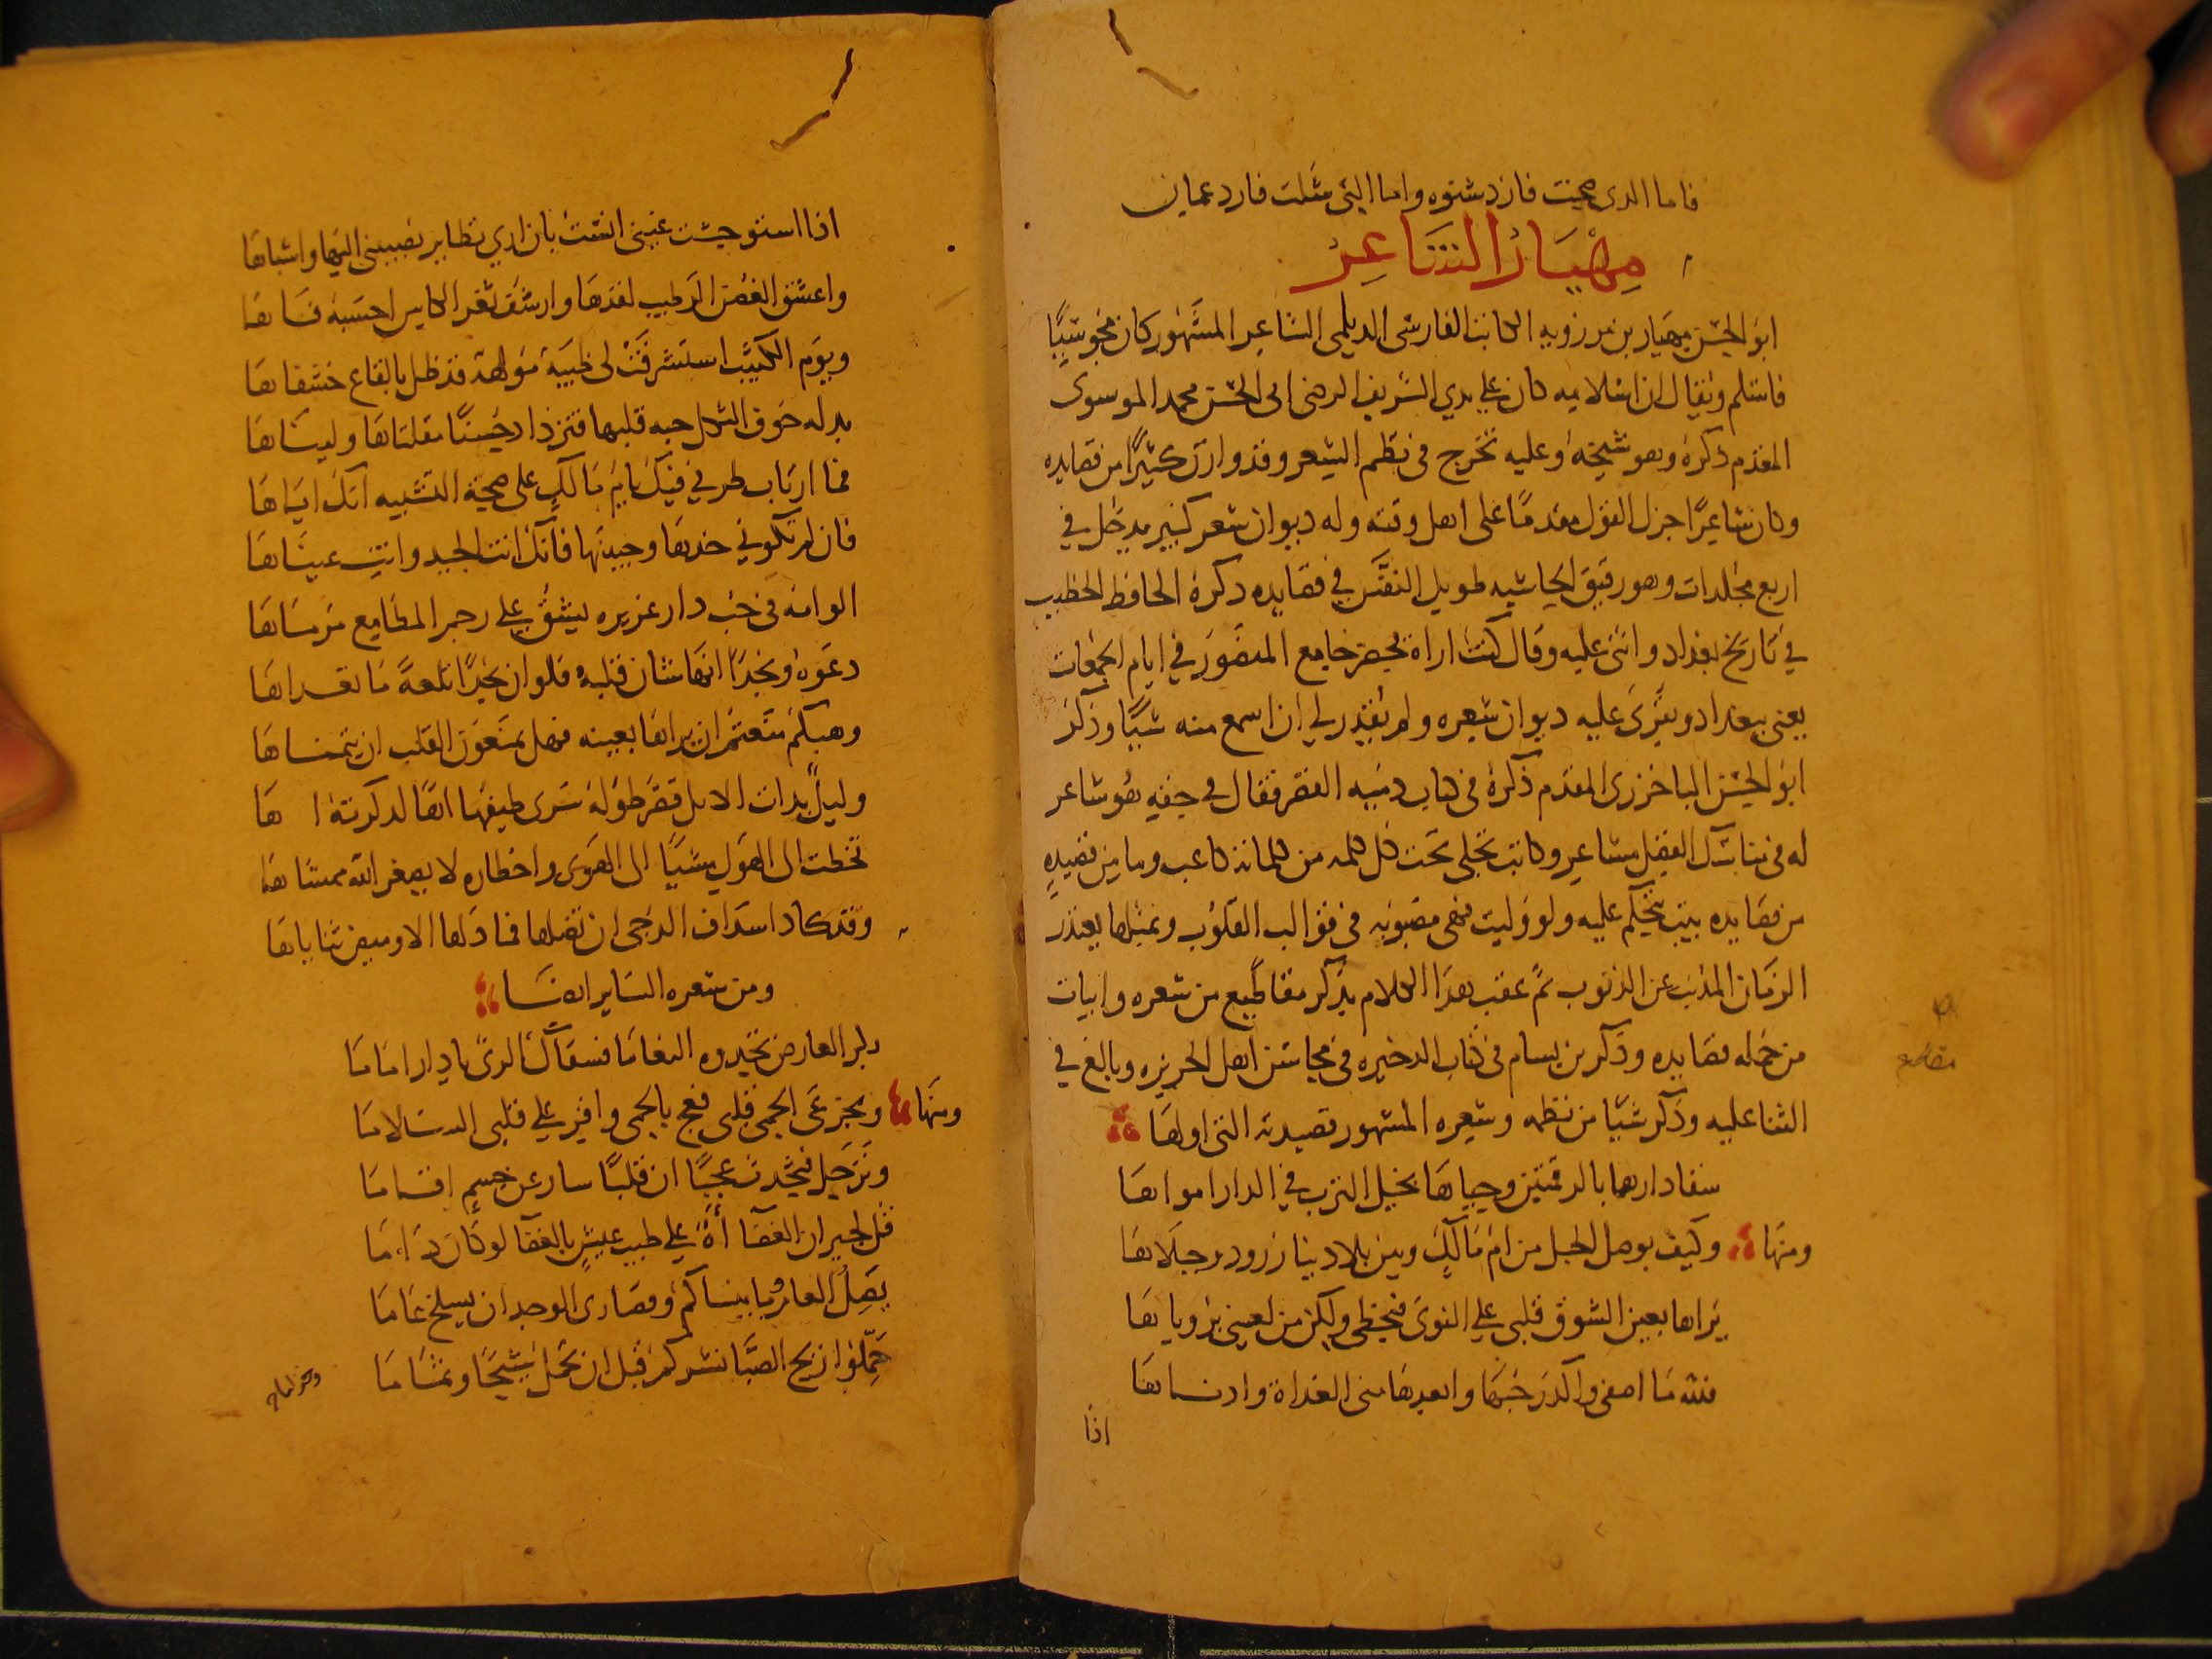 فاما الدى صحيت فازد شنوه واما التى مثلت فازد عمان
مِهْيَارُ الشَاعِرُ
ابو الحسن مهيار بن مرزويه الكاتب الفارسى الديلمى الشاعر المشهور كان مجوسيًا
فاسلم ويقال ان اسلامه كان على يدي الشريف الرضى ابى الحسن محمد الموسوى
المقدم ذكره وهو شيخه وعليه تخرج فى نظم الشعر وقد وازن كثيرًا من قصايده
وكان شاعرًا جزل القول مقدمًا على اهل وقته وله ديوان شعر كبير يدخل في
اربع مجلدات وهو رقيق الحاشيه طويل النفس في قصايده ذكره الحافظ الخطيب
في تاريخ بغداد واثنى عليه وقال كنت اراه يحضر جامع المنصور في ايام الجمعات
يعنى ببغداد ويقرى عليه ديوان شعره ولم يقدر لي ان اسمع منه شيًا وذكر
ابو الحسن الباخرزى المقدم ذكره فى كتاب دميه القصر فقال في حقه هو شاعر
له فى مناسك الفضل مشاعر وكاتب تجلى تحت كل كلمه من كلماته كاعب وما من قصيده
من قصايده بيت يتحكم عليه ولو وليت فهى مصبوبه فى قوالب القلوب وبمثلها يعتذر
الزمان المذنب عن الذنوب ثم عقب هذا الكلام بذكر مقاطيع من شعره وابيات
مقاطيع
من جمله قصايده وذكر بن بسام فى كتاب الدخيره فى محاسن اهل الجزيره وبالغ في
الثنا عليه وذكر شيًا من نظمه وشعره المشهور قصيدته التى اولها
سقا دارها بالرقمتين وحياها بخيل الترب في الدار امواها
ومنها وكيف بوصل الحبل من ام مالكٍ وبين بلادينا زرود وجبلاها
يراها بعين الشوق قلبى علي النوى فيحظى ولكن من لعينى برؤياها
فلله ما اصفى واكدر حبها وابعدها منى الغداة وادناها
اذا
اذا استوحشت عينى انست بان ارى نظاير تصبينى اليها واشباها
واعتنق الغصن الرطيب لقدها وارشف ثغر الكاس احسبه فاها
ويوم الكثيب استشرفت لى ظبية مولهة قد ظل بالقاع خشفاها
يدله خوف الثكل حبه قلبها فتزداد حسنًا مقلتاها وليتاها
فما ارتاب طرفي فيك يا ام مالكٍ على صحة التشبيه انك اياها
فان لم تكوني خدها وجبينها فانك انت الجيد وانتي عيناها
الوامه فى حب دار عزيزه يشق على رجم المطامع مرماها
دعوه ونجدًا انها شان قلبه فلو ان نجدًا تلعةً ما تعداها
وهبكم منعتم ان يراها بعينه فهل تمنعون القلب ان يتمناها
وليلٍ بذات الاثل قصر طوله سرى طيفها اهًا لذكرته ا ها
تخطت الى الهول مشيًا الى الهوى واخطاره لا يصغر الله ممشاها
وقد كاد اسداف الدجى ان تضلها فما دلها الا وميض ثناياها
ومن شعره الساير ايضًا
بكر العارض تحدوه النعاما فسقاك الرىّ يا دار اماما
ومنها وبجزعى الحمى قلبى فعج بالحمى واقر علي قلبى السلاما
وترجل فتحدث عجبًا ان قلبًا سار عن جسمٍ اقاما
قل لجيران الغضا اه على طيب عيشٍ بالغضا لو كان داما
يصل العام وما ينساكم وقصارى الوجد ان يسلخ عاما
حملوا ريح الصبا نشركم قبل ان تحمل شيحًا وثماما